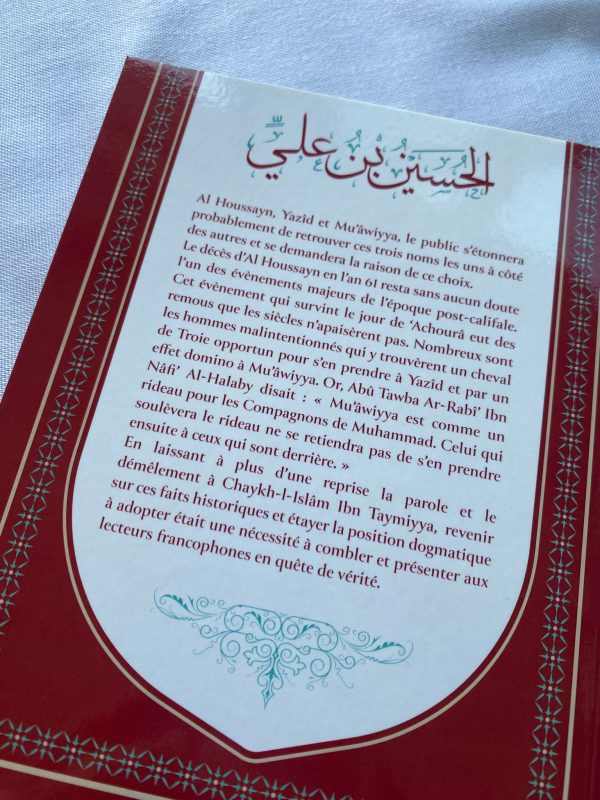 الحسين بن علي
Al Houssayn, Yazîd et Mu'âwiyya, le public s'étonnera
probablement de retrouver ces trois noms les uns à côté
des autres et se demandera la raison de ce choix.
Le décès d'Al Houssayn en l'an 61 resta sans aucun doute
l'un des évènements majeurs de l'époque post-califale.
Cet évènement qui survint le jour de 'Achourâ eut des
remous que les siècles n'apaisèrent pas. Nombreux sont
les hommes malintentionnés qui y trouvèrent un cheval
de Troie opportun pour s'en prendre à Yazîd et par un
effet domino à Mu'âwiyya. Or, Abû Tawba Ar-Rabî' Ibn
Nâfi' Al-Halaby disait : « Mu'âwiyya est comme un
rideau pour les Compagnons de Muhammad. Celui qui
soulèvera le rideau ne se retiendra pas de s'en prendre
ensuite à ceux qui sont derrière. »
En laissant à plus d'une reprise la parole et le
démêlement à Chaykh-l-Islâm Ibn Taymiyya, revenir
sur ces faits historiques et étayer la position dogmatique
à adopter était une nécessité à combler et présenter aux
lecteurs francophones en quête de vérité.